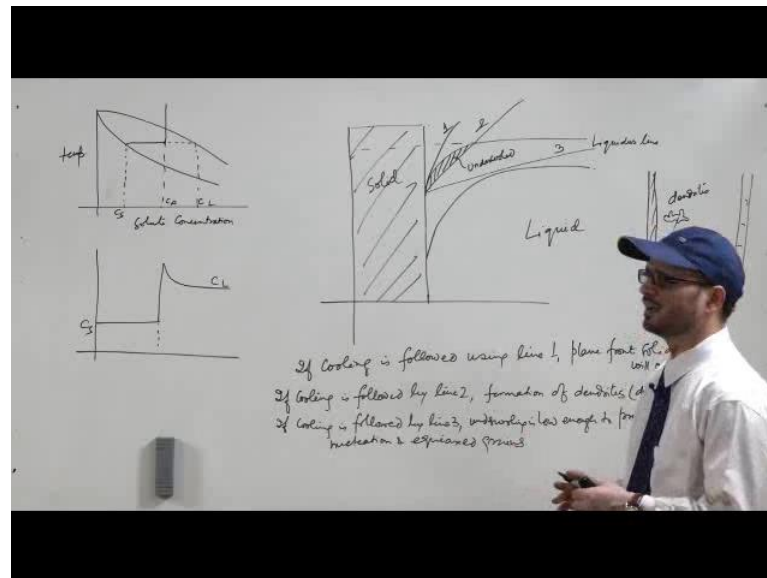 temp
Cs
CA
CL
Solute Concentration
CL
Cs
1
2
Liquidus line
3
Solid
Liquid
dendritic
If Cooling is followed using line 1, plane front
will
If Cooling is followed by line 2, formation of dendrites
If Cooling is followed by line 3, low enough to
nucleation & equiaxed grains